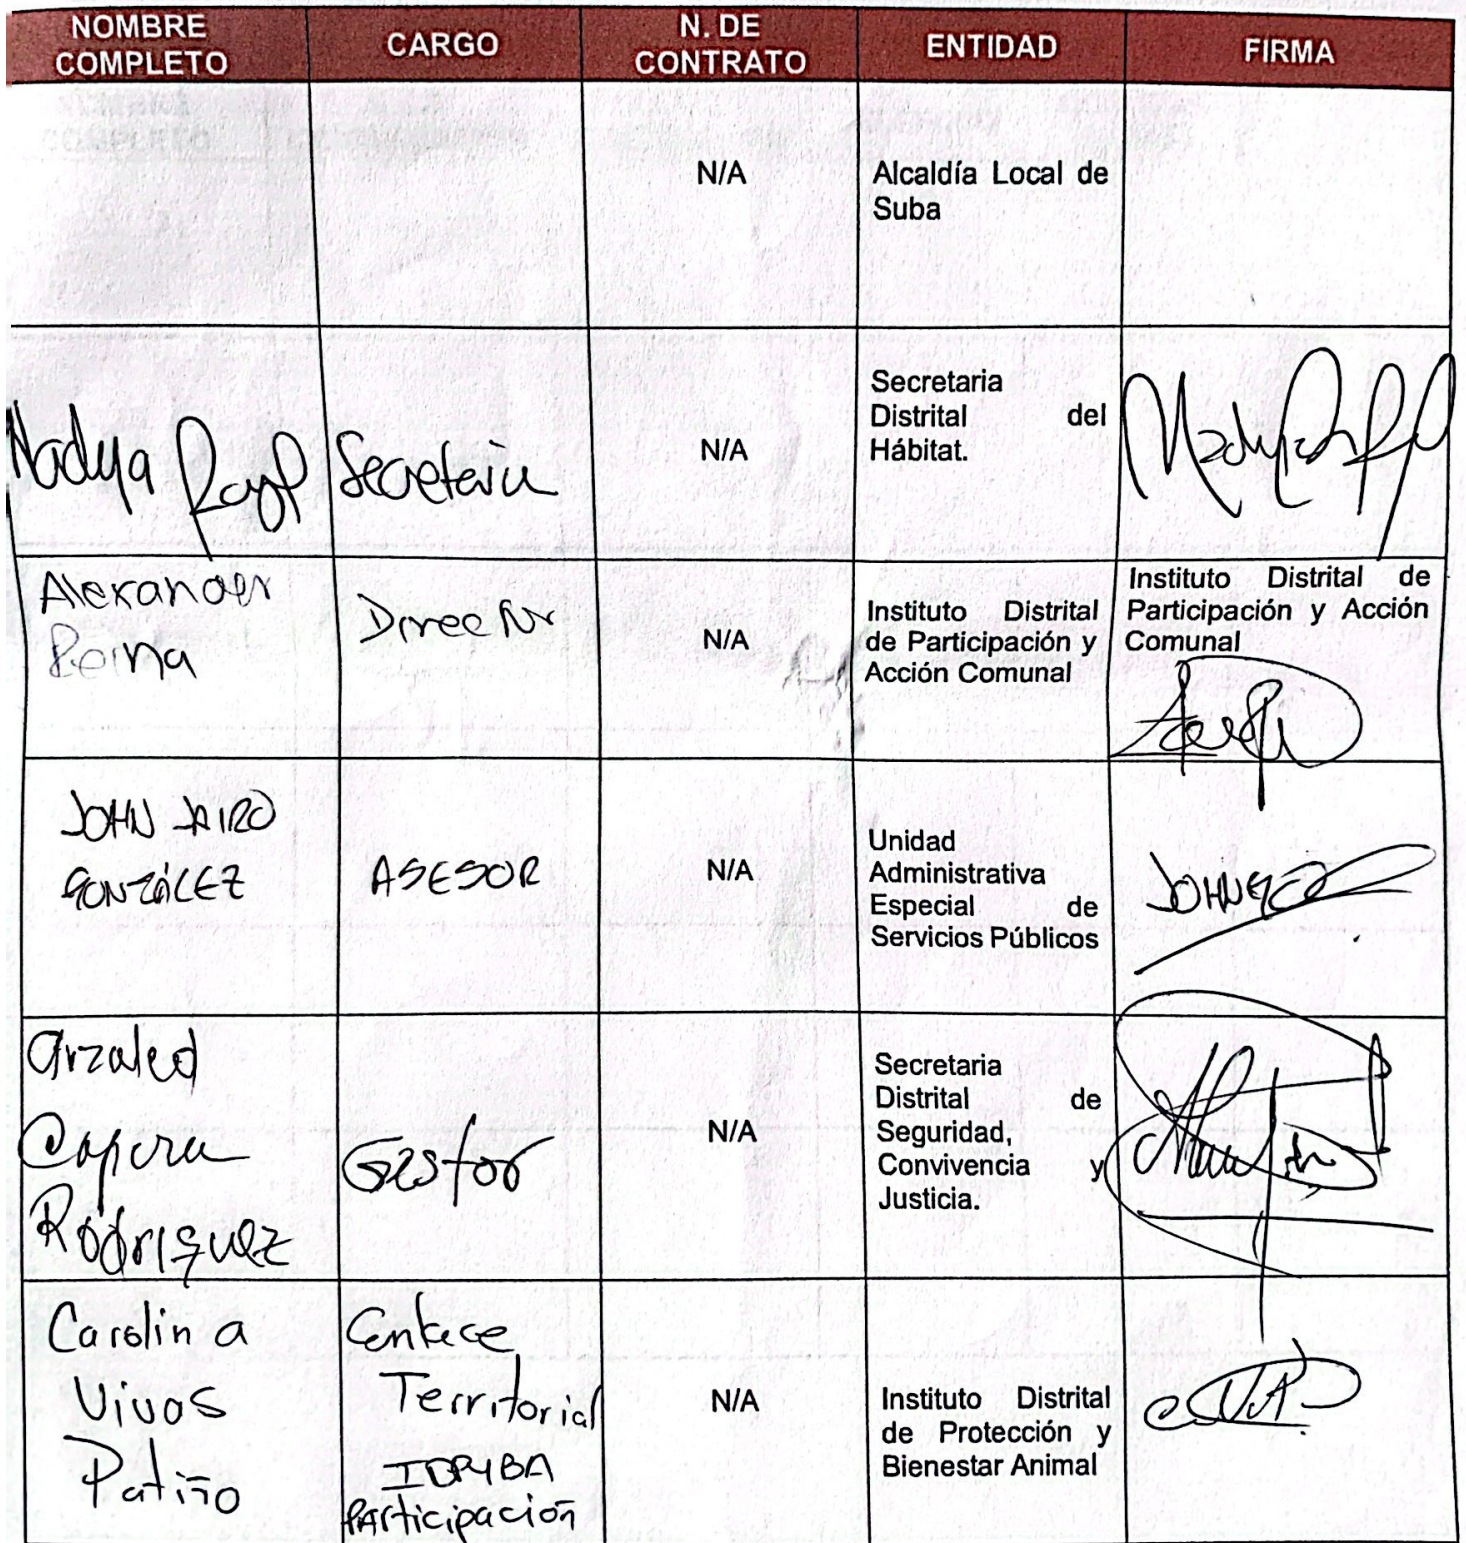 NOMBRE COMPLETO
CARGO
N. DE CONTRATO
ENTIDAD
FIRMA
N/A
Alcaldía Local de
Suba
Nadya
Secretaria
N/A
Secretaria
Distrital del
Hábitat.
Alexander
Reina
Director
N/A
Instituto Distrital
de Participación y
Acción Comunal
Instituto Distrital de
Participación y Acción
Comunal
JOHN JAIRO
GONZÁLEZ
ASESOR
N/A
Unidad
Administrativa
Especial de
Servicios Públicos
Arzaled
Capera
Rodriguez
Gestor
N/A
Secretaria
Distrital de
Seguridad,
Convivencia y
Justicia.
Carolina
Vivas
Patiño
Enlace
Territorial
IDPYBA
Participación
N/A
Instituto Distrital
de Protección y
Bienestar Animal